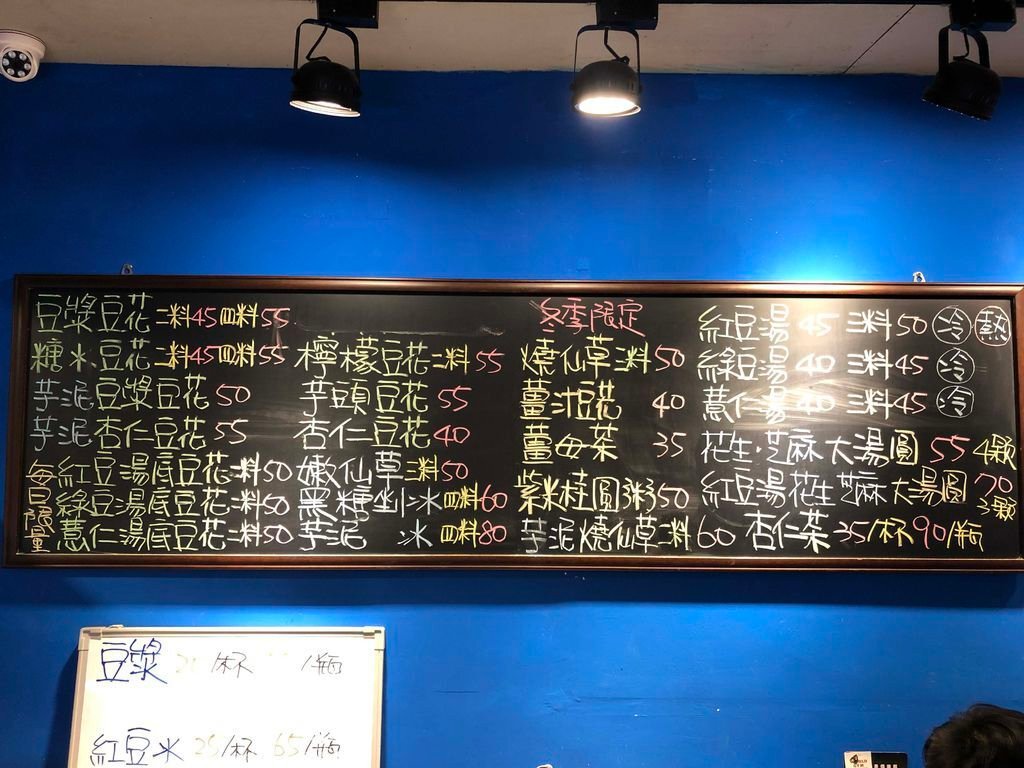 豆漿豆花 二料45 四料55
糖水豆花 二料45 四料55
芋泥豆漿豆花 50
芋泥杏仁豆花 55
每日限量
紅豆湯底豆花二料50
綠豆湯底豆花二料50
薏仁湯底豆花二料50
檸檬豆花二料55
芋頭豆花 55
杏仁豆花 40
嫩仙草三料50
黑糖剉冰 四料60
芋泥 冰 四料80
冬季限定
燒仙草三料50
薑汁豆花 40
薑母茶 35
紫米桂圓粥50
芋泥燒仙草二料60
紅豆湯 45 三料50 冷 熱
綠豆湯 40 三料45 冷
薏仁湯 40 三料45 冷
花生·芝麻大湯圓 55 4顆
紅豆湯花生芝麻大湯圓 70 3顆
杏仁茶35/杯90/瓶
豆漿 /杯 /瓶
紅豆水 25/杯 65/瓶